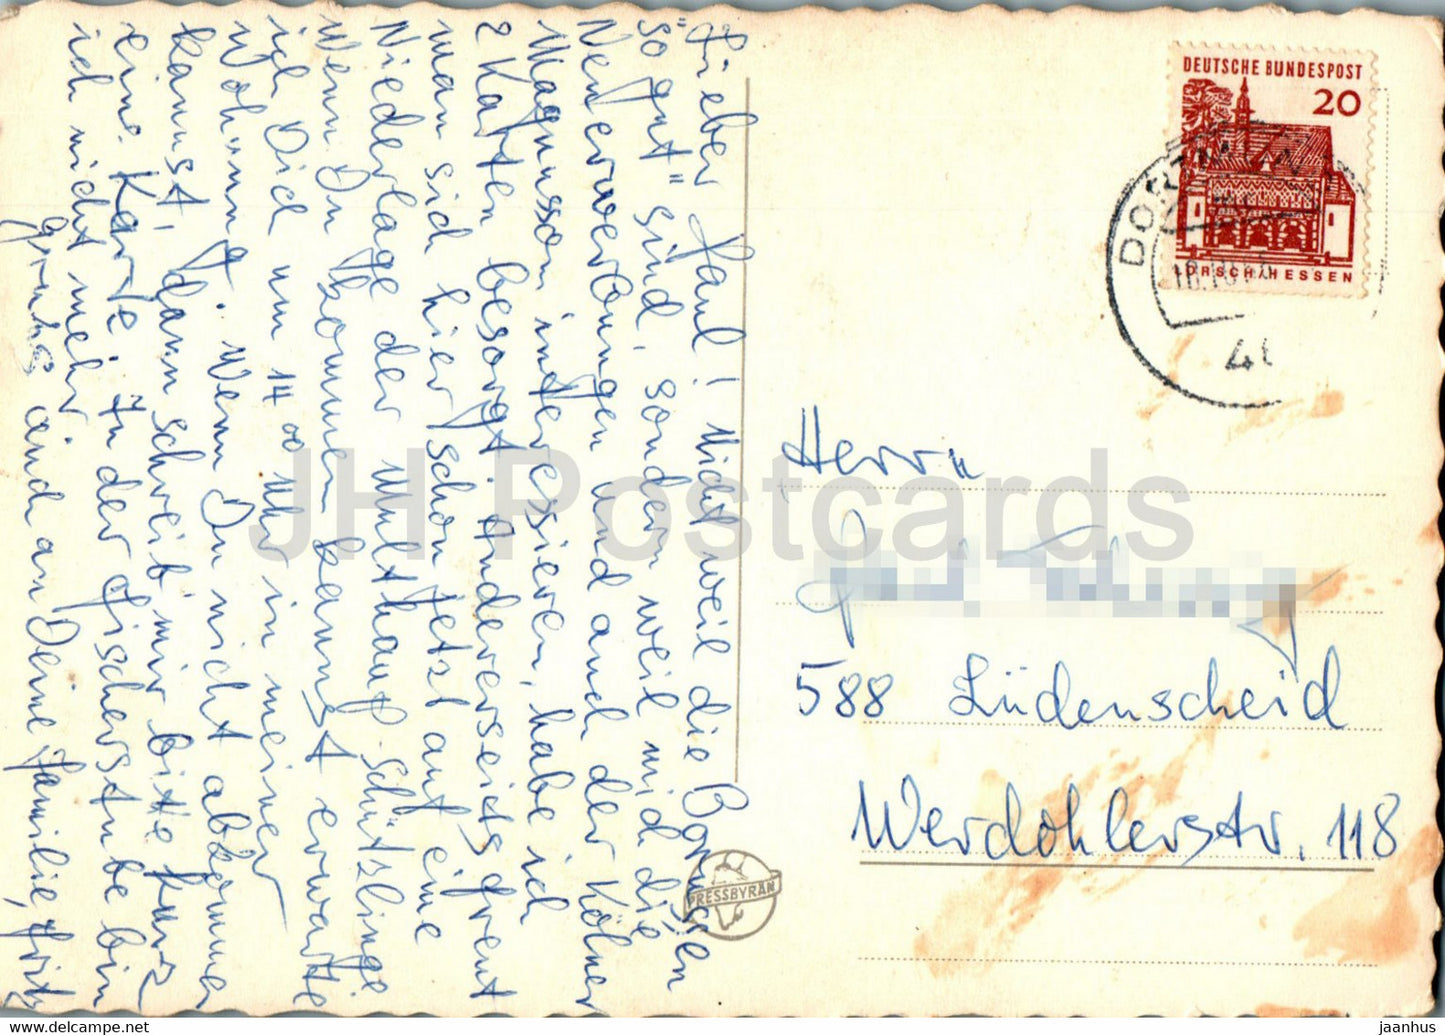 Lieber Paul! Nicht weil die Borussen
"so gut" sind, sondern weil mich die
Neuerwerbungen und auch der Kölner
Magnusson interessieren, habe ich
2 Karten besorgt. Andererseits freut
man sich hier schon jetzt auf eine
Niederlage der Multhaup Schützlinge.
Wenn Du kommen kannst erwarte
ich Dich um 14 00 Uhr in meiner
Wohnung. Wenn Du nicht abkommen
kannst, dann schreib' mir bitte kurz
eine Karte. In der Fischerstube bin
ich nicht mehr.
Gruß auch an Deine Familie, Fritz
DEUTSCHE BUNDESPOST
20
LORSCH/HESSEN
46
PRESSBYRÅN
JH Postcards
Herrn
588 Lüdenscheid
Werdohlerstr. 118
jaanhus